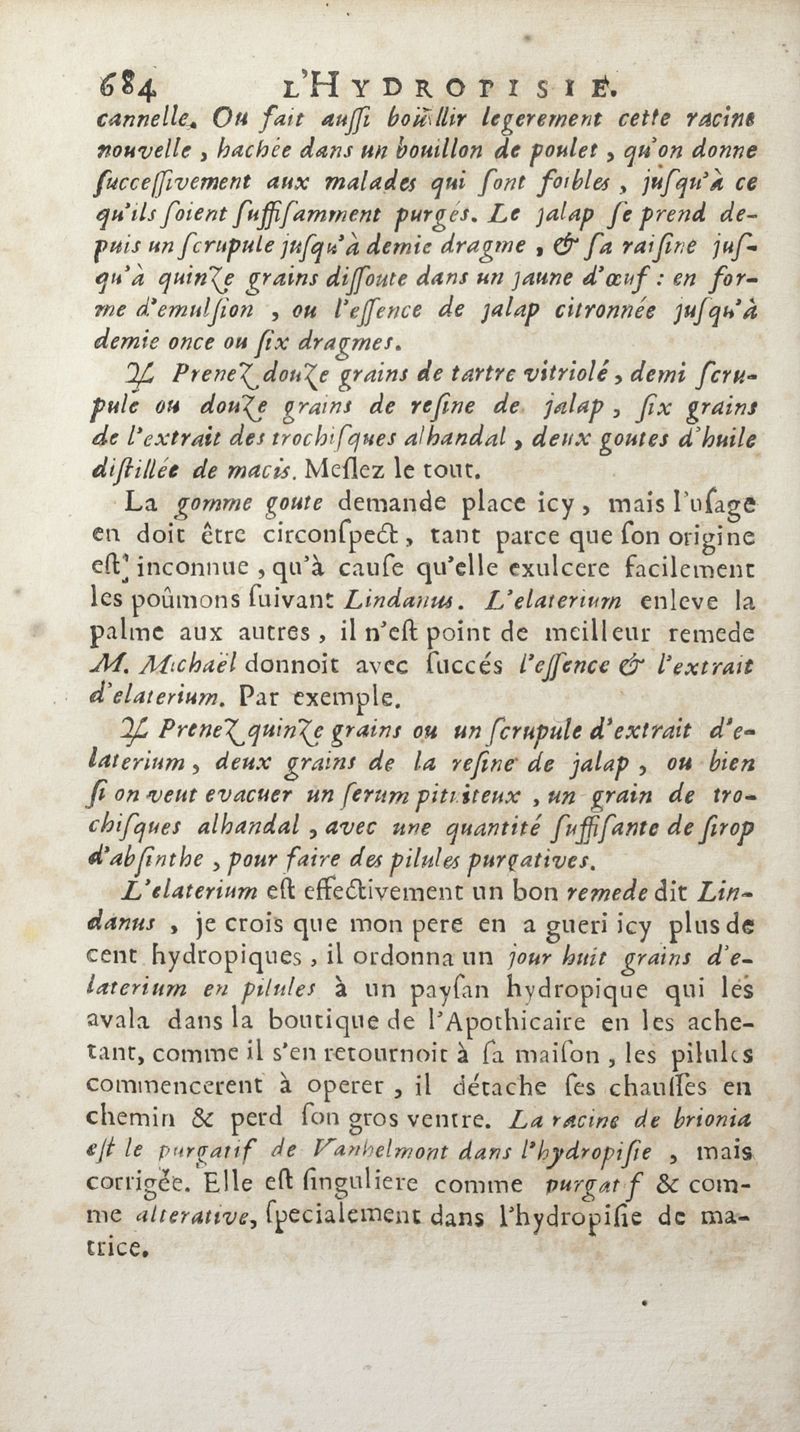 684 L'HYDROPISIE.
cannelle. Ou fait auſſi boüillir legerement cette racine
nouvelle, hachée dans un bouillon de poulet, qu'on donne
ſucceſſivement aux malades qui ſont foibles, juſqu'à ce
qu'ils ſoient ſuffiſamment purgés. Le jalap ſe prend de-
puis un ſcrupule juſqu'à demie dragme, & ſa raiſine juſ-
qu'à quinze grains diſſoute dans un jaune d'œuf : en for-
me d'emulſion, ou l'eſſence de jalap citronnée juſqu'à
demie once ou ſix dragmes.
℞ Prenez douze grains de tartre vitriolé, demi ſcru-
pule ou douze grains de reſine de jalap, ſix grains
de l'extrait des trochiſques alhandal, deux goutes d'huile
diſtillée de macis. Meſlez le tout.
La gomme goute demande place icy, mais l'uſage
en doit être circonſpect, tant parce que ſon origine
eſt inconnue, qu'à cauſe qu'elle exulcere facilement
les poûmons ſuivant Lindanus. L'elaterium enleve la
palme aux autres, il n'eſt point de meilleur remede
M. Michaël donnoit avec ſuccés l'eſſence & l'extrait
d'elaterium. Par exemple.
℞ Prenez quinze grains ou un ſcrupule d'extrait d'e-
laterium, deux grains de la reſine de jalap, ou bien
ſi on veut evacuer un ſerum pituiteux, un grain de tro-
chiſques alhandal, avec une quantité ſuffiſante de ſirop
d'abſinthe, pour faire des pilules purgatives.
L'elaterium eſt effectivement un bon remede dit Lin-
danus, je crois que mon pere en a gueri icy plus de
cent hydropiques, il ordonna un jour huit grains d'e-
laterium en pilules à un payſan hydropique qui les
avala dans la boutique de l'Apothicaire en les ache-
tant, comme il s'en retournoit à ſa maiſon, les pilules
commencerent à operer, il détache ſes chauſſes en
chemin & perd ſon gros ventre. La racine de brionia
eſt le purgatif de Vanhelmont dans l'hydropiſie, mais
corrigée. Elle eſt ſinguliere comme purgatif & com-
me alterative, ſpecialement dans l'hydropiſie de ma-
trice.